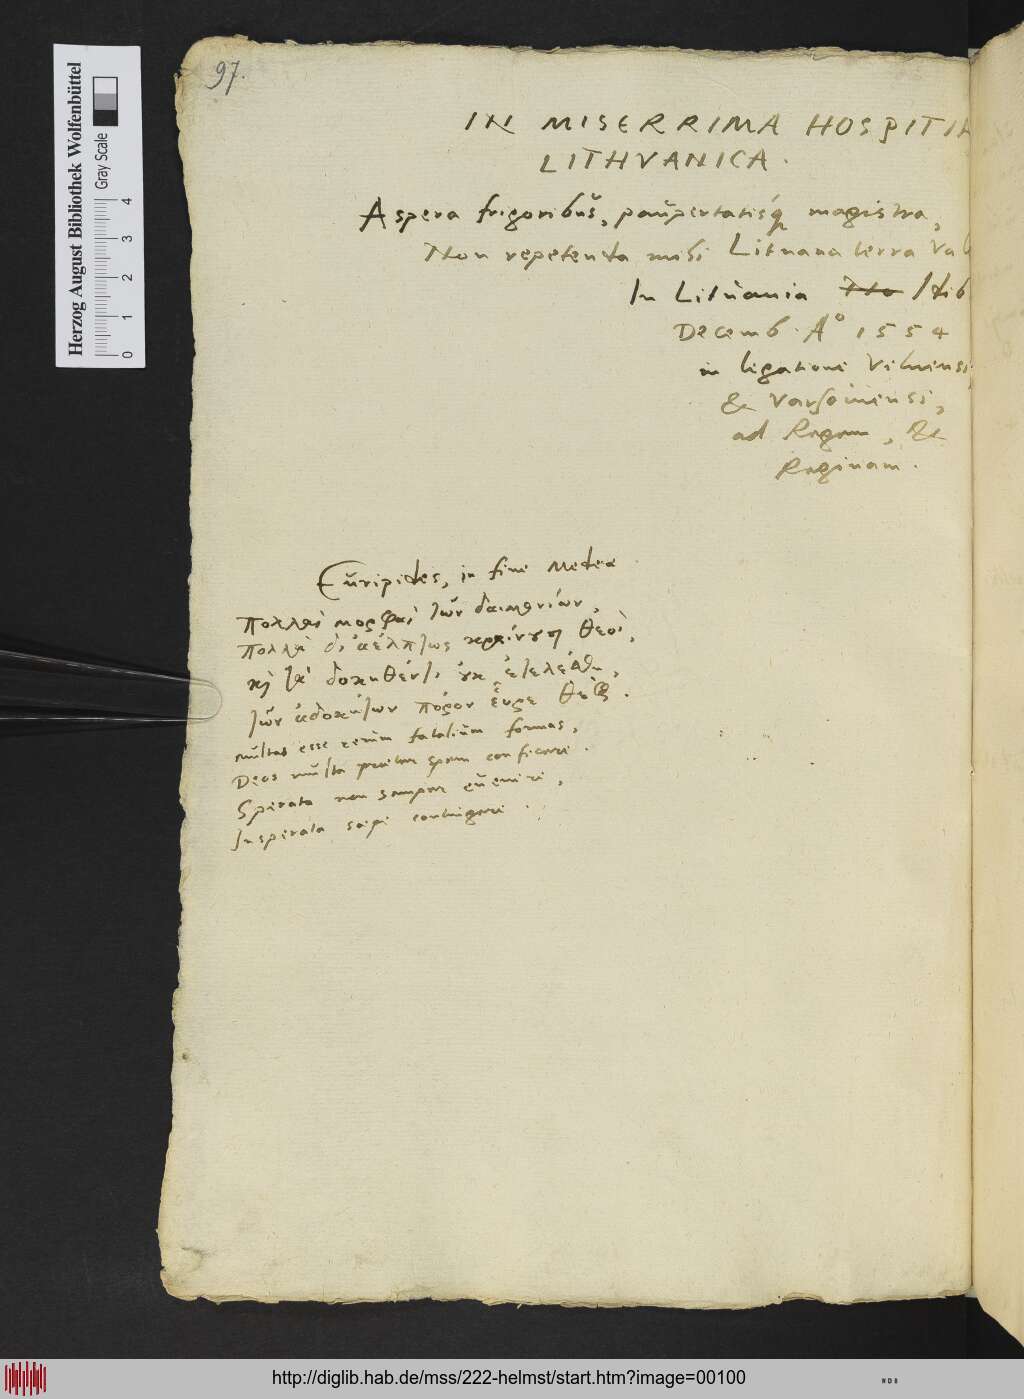 97.
IN MISERRIMA HOSPITIA
LITHVANICA.
Aspera frigoribus, paupertatisq magistra,
Non repetenda mihi Lituana terra Val
In Lituania Idib
Decemb. Aº 1554
in legatione Vilnensi
& Varsouiensi,
ad Regem, &
Reginam.
Euripides, in fine Medea
πολλαὶ μορφαὶ τῶν δαιμονίων,
πολλὰ δ' ἀέλπτως κραίνουσι θεοὶ,
καὶ τὰ δοκηθέντ' οὐκ ἐτελέσθη,
τῶν ἀδοκήτων πόρον εὗρε θεός.
multas esse rerum fatalium formas,
Deos multa praeter spem conficere.
Sperata non semper euenire,
Insperata saepe contingere.
Herzog August Bibliothek Wolfenbüttel
Gray Scale
0 1 2 3 4
http://diglib.hab.de/mss/222-helmst/start.htm?image=00100